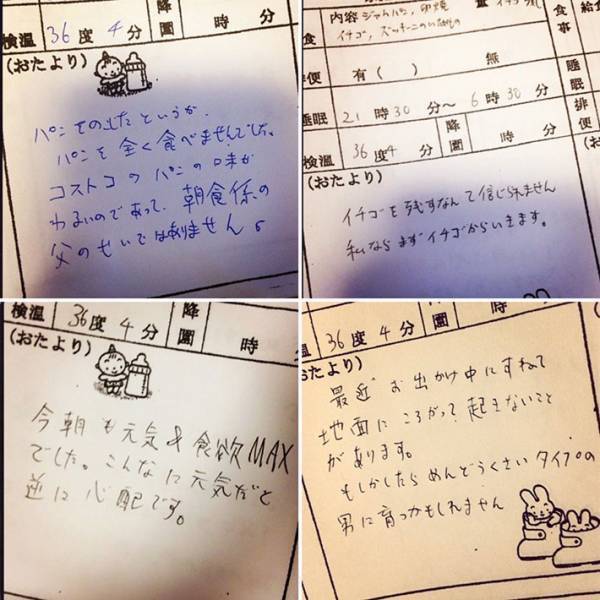 検温 36度 4分 降園 時 分
(おたより)
パンその上たというか、
パンを全く食べませんでした。
コストコのパンの味が
わるいのであって、朝食係の
父のせいではありません。
食 内容 ジャムパン, 卵焼 量
イチゴ、ズッキーニのいためもの
食事
給食
便 有( ) 無
睡眠 21時30分〜6時30分
睡眠
検温 36度4分 降園 時 分
排便
(おたより)
イチゴを残すなんて信じられません
私ならまずイチゴからいきます。
検温 36度 4分 降園 時
(おたより)
今朝も元気&食欲MAX
でした。こんなに元気だと
逆に心配です。
温 36度 4分 降園 時 分
おたより)
最近お出かけ中にすねて
地面にころがって起きないこと
があります。
もしかしたらめんどうくさいタイプの
男に育つかもしれません